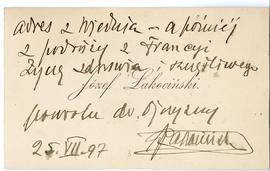 adres z Wiednia – a później
z podróży z Francyi
Życzę zdrowia i szczęśliwego
Józef Łakociński.
powrotu do Ojczyzny
25. VII. 97